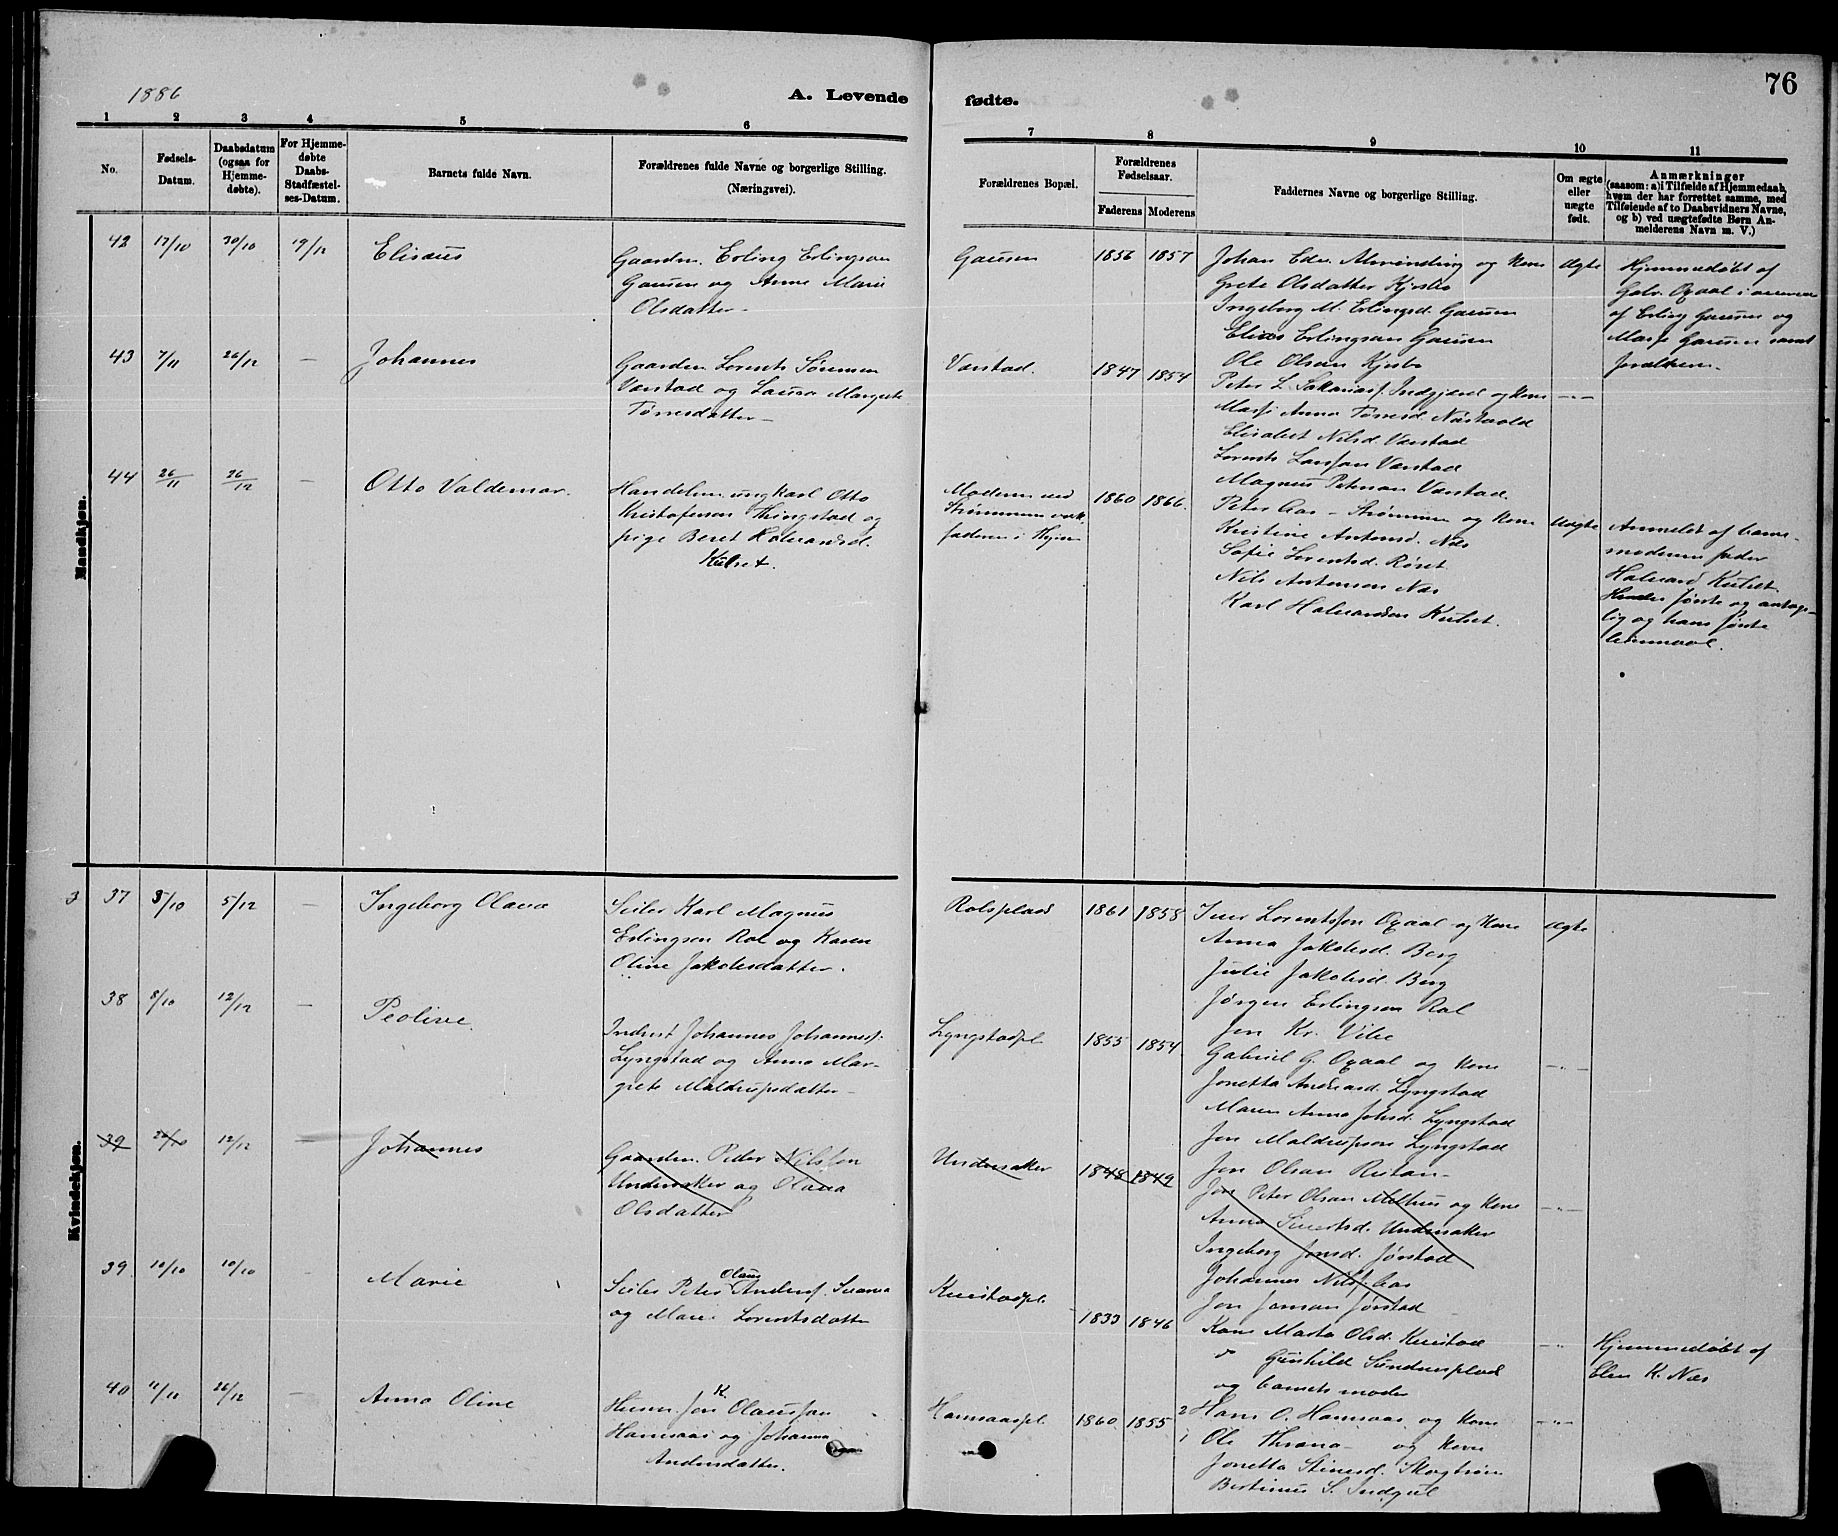 1886
A. Levende
fødte.
76
1 2 3 4 5 6 7 8 9 10 11
No.
Fødsels-
Datum.
Daabsdatum
(ogsaa for
Hjemme-
døbte).
For Hjemme-
døbte
Daabs-
Stadfæstel-
ses-Datum.
Barnets fulde Navn.
Forældrenes fulde Navne og borgerlige Stilling.
(Næringsvei).
Forældrenes Bopæl.
Forældrenes
Fødselsaar.
Faderens Moderens
Faddernes Navne og borgerlige Stilling.
Om ægte
eller
uægte
født.
Anmærkninger
(saasom: a) i Tilfælde af Hjemmedaab,
hvem der har forrettet samme, med
Tilføiende af to Daabsvidners Navne,
og b) ved uægtefødte Børn An-
melderens Navn m. V.)
Mandkjøn.
42 17/10 30/10 19/12 Elisæus
Gaardm. Erling Erlingsen
Gausen og Anne Marie
Olsdatter
Gausen 1856 1857
Johan Edv. Almending og Kone
Grete Olsdatter Kjesbo
Ingeborg M. Erlingsd. Gausen
Elias Erlingsen Gausen
Ole Olsen Kjesbo
Ægte
Hjemmedøbt af
Gabr. Oxaal i nærvær
af Erling Gausen og
Gausen samt
Forældrene
43 7/11 26/12 — Johannes
Gaardm. Lorents Sørensen
Varstad og Laura Margrete
Tørresdatter
Varstad. 1847 1854
Peter L. Sakarias. Indgjærd og Kone
Anna Tørresd. Nastvold
Elisabet Nilsd. Varstad
Lorents Larssen Varstad
Magnus Petersen Varstad
44 26/11 26/12 — Otto Valdemar.
Handelsm. ungkarl Otto
Kristofersen Thingstad og
pige Beret Halvardsd.
Kulset.
Moderen ved
Strømmen
faderen i
1860 1866.
Peter Aas - Strømmen og Kone
Kristine Antonsd. Næs
Sofie Lorentsd. Røset
Nils Antonsen Næs
Karl Halvardsen Kulset.
Uægte
Anmeldt af barne-
moderens fader
Halvard Kulset.
Hendes første og antage-
lig og hans første
leiermaal.
Kvindekjøn.
3 37 5/10 5/12 — Ingeborg Olava
Seiler Karl Magnus
Erlingsen Rol og Karen
Oline Jakobsdatter.
Rolsplads 1861 1858
Iver Lorentssen Oxaal og Kone
Anna Jakobsd. Berg
Julie Jakobsd. Berg
Jørgen Erlingsen Rol
Jon Kr. Vibe
Ægte
38 8/10 12/12 — Peoline.
Indrest Johannes Johannes.
Lyngstad og Anna Mar-
grete Maldrupsdatter
Lyngstadpl 1855 1854
Gabriel G. Oxaal og Kone
Jonetta Andreasd. Lyngstad
Maren Anna Johsd. Lyngstad
Jon Maldrupsen Lyngstad
Jon Olsen Rustan
39 20/10 12/12 — Johannes
Gaardm. Peder Nilssen
Undersaker og Olava
Olsdatter
Undersaker 1848 1849
Jon Peter Olsen Melhus og Kone
Anna Sivertsd. Undersaker
Ingeborg Jonsd. Jørstad
Johannes Nils. Aas
Jon Jonsen Jørstad
39 10/10 10/10 Marie
Seiler Peter Olaus Anders.
og Marie Lorentsdatter
Kvistadpl. 1833 1846
Kone Marta Olsd. Kvistad
Gunhild
og barnets moder
Hjemmedøbt af
Elen K. Næs
40 11/11 26/12 — Anna Oline
Husm. Jon K. Olaussen
Hamsaas og Johanna
Andersdatter.
Hamsaaspl. 1860 1855
2 Hans O. Hamsaas og Kone
1 Ole Thrana og Kone
Jonetta Steinesd. Skogtrøen
Bertinus S. Indgul